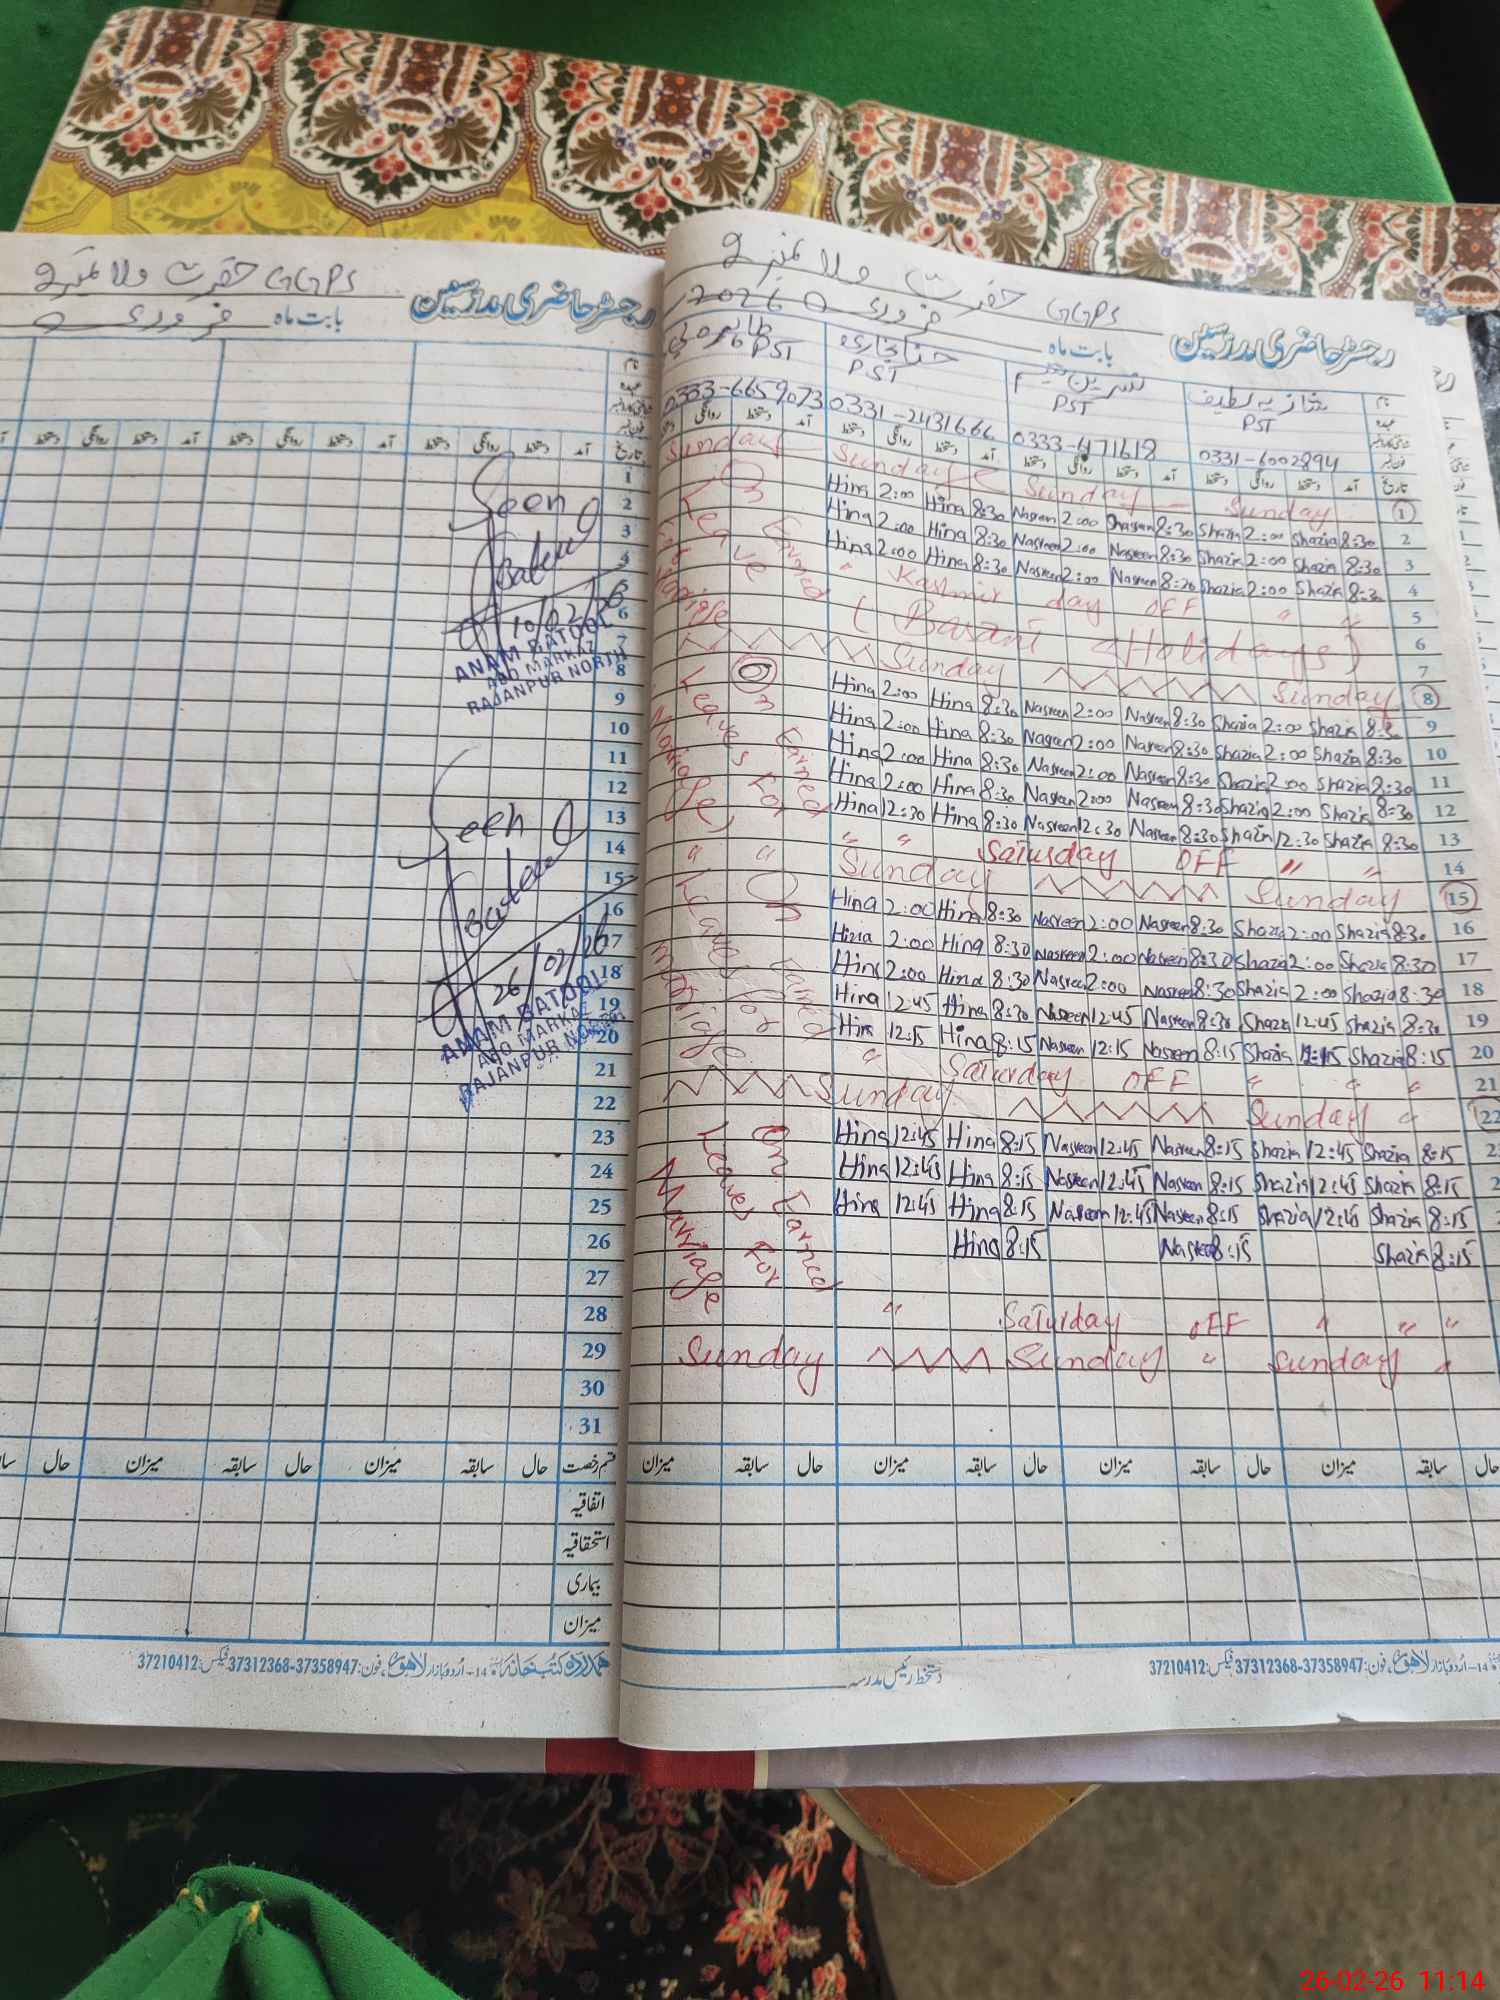 GGPS حضرت والا نمبر 9
رجسٹر حاضری مدرسین
بابت ماہ فروری
نام
عہدہ
فون نمبر
تاریخ آمد دستخط روانگی دستخط آمد دستخط روانگی دستخط آمد
1
2
3
4
5
6
7
8
9
10
11
12
13
14
15
16
17
18
19
20
21
22
23
24
25
26
27
28
29
30
31
Seen
Batool
10/02/26
ANAM BATOOL
AEO MARKAZ
RAJANPUR NORTH
Seen
Batool
26/02/26
ANAM BATOOL
AEO MARKAZ
RAJANPUR NORTH
قسم رخصت حال سابقہ میزان حال سابقہ میزان حال
اتفاقیہ
استحقاقیہ
بیماری
میزان
ہمدرد کتب خانہ 14-اردو بازار لاہور، فون: 37358947-37312368 فیکس: 37210412
GGPS حضرت والا نمبر 9
رجسٹر حاضری مدرسین
بابت ماہ فروری 2026
نام شازیہ لطیف نسرین حنا بخاری
PST PST PST PST
0331-6002894 0331-2431666 0333-6659073
تاریخ آمد دستخط روانگی دستخط آمد دستخط روانگی دستخط آمد دستخط روانگی دستخط آمد
Sunday Sunday Sunday Sunday 1
Hina 2:00 Hina 8:30 Nasreen 2:00 8:30 Shazia 2:00 Shazia 8:30 2
Hina 2:00 Hina 8:30 Nasreen 2:00 Nasreen 8:30 Shazia 2:00 Shazia 8:30 3
Hina 2:00 Hina 8:30 Nasreen 2:00 Nasreen 8:20 Shazia 2:00 Shazia 8:30 4
" Kashmir day OFF " " 5
( Basant Holidays ) 6
7
Sunday Sunday 8
Hina 2:00 Hina 8:30 Nasreen 2:00 Nasreen 8:30 Shazia 2:00 Shazia 8:30 9
Hina 2:00 Hina 8:30 Nasreen 2:00 Nasreen 8:30 Shazia 2:00 Shazia 8:30 10
Hina 2:00 Hina 8:30 Nasreen 2:00 Nasreen 8:30 Shazia 2:00 Shazia 8:30 11
Hina 2:00 Hina 8:30 Nasreen 2:00 Nasreen 8:30 Shazia 2:00 Shazia 8:30 12
Hina 12:30 Hina 8:30 Nasreen 12:30 Nasreen 8:30 Shazia 12:30 Shazia 8:30 13
" " " " Saturday OFF " " 14
Sunday Sunday 15
Hina 2:00 Hina 8:30 Nasreen 2:00 Nasreen 8:30 Shazia 2:00 Shazia 8:30 16
Hina 2:00 Hina 8:30 Nasreen 2:00 Nasreen 8:30 Shazia 2:00 Shazia 8:30 17
Hina 2:00 Hina 8:30 Nasreen 2:00 Nasreen 8:30 Shazia 2:00 Shazia 8:30 18
Hina 12:45 Hina 8:30 Nasreen 12:45 Nasreen 8:30 Shazia 12:45 Shazia 8:30 19
Hina 12:15 Hina 8:15 Nasreen 12:15 Nasreen 8:15 Shazia 12:15 Shazia 8:15 20
" Saturday OFF " " " 21
Sunday Sunday " 22
Hina 12:45 Hina 8:15 Nasreen 12:45 Nasreen 8:15 Shazia 12:45 Shazia 8:15
Hina 12:45 Hina 8:15 Nasreen 12:45 Nasreen 8:15 Shazia 12:45 Shazia 8:15
Hina 12:45 Hina 8:15 Nasreen 12:45 Nasreen 8:15 Shazia 12:45 Shazia 8:15
Hina 8:15 Nasreen 8:15 Shazia 8:15
" Saturday OFF " " "
Sunday Sunday " Sunday "
On Earned
Leave
For
On Earned
Leaves For
Marriage
On Earned
Leaves For
Marriage
On Earned
Leaves For
Marriage
حال سابقہ میزان حال سابقہ میزان حال سابقہ میزان حال سابقہ میزان
14-اردو بازار لاہور، فون: 37358947-37312368 فیکس: 37210412
دستخط رئیس مدرسہ
26-02-26 11:14